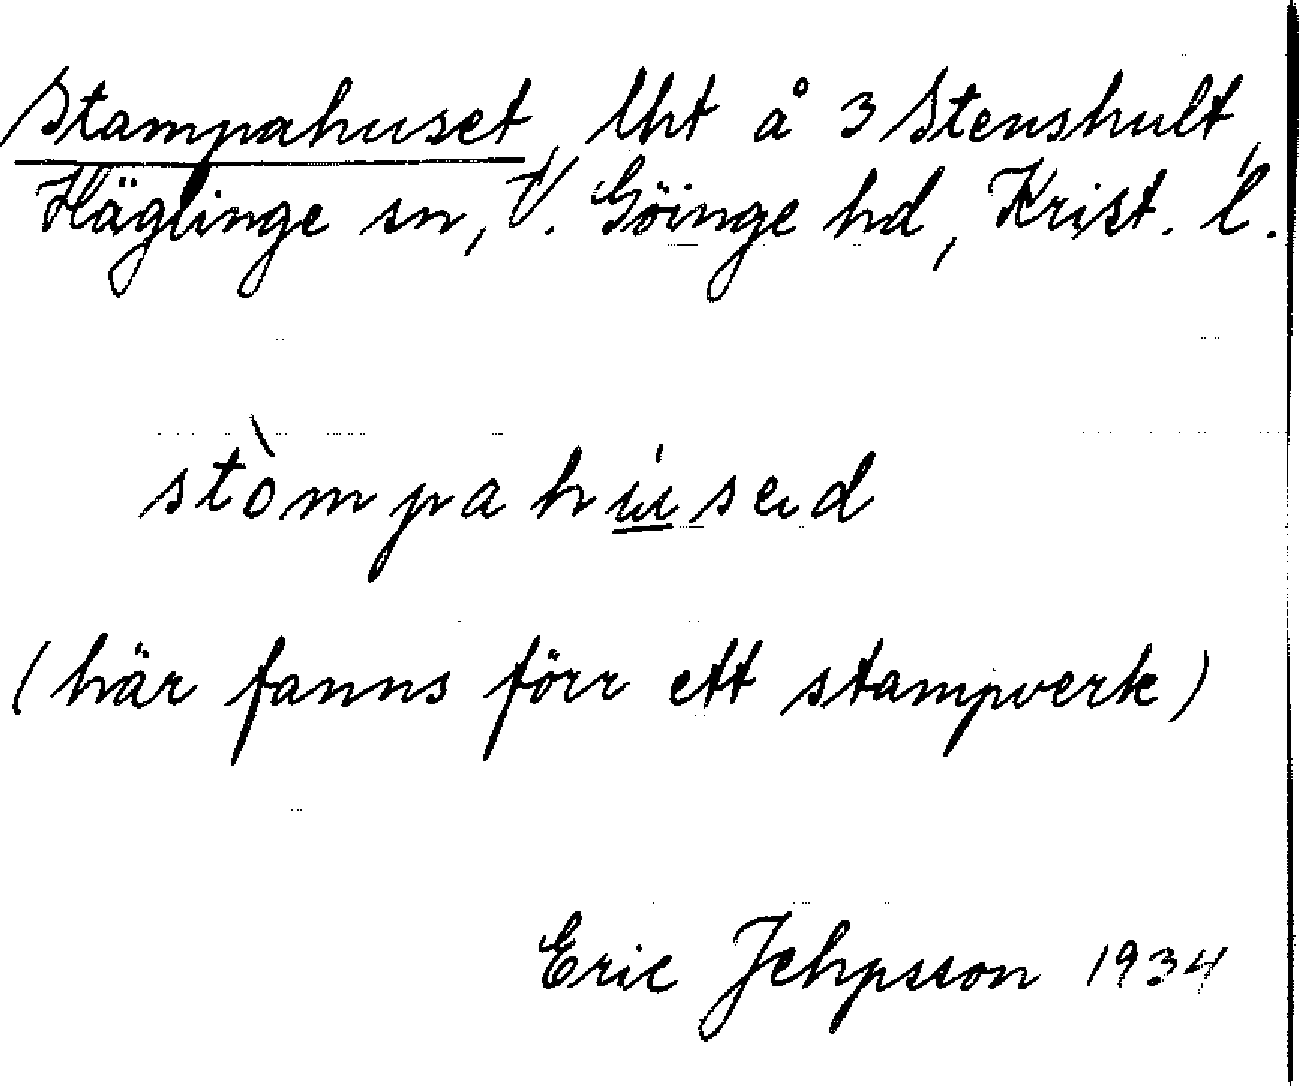 Stampahuset, lht å 3 Stenshult,
Häglinge sn, V. Göinge hd, Krist. l.
stòmpahúsed
(här fanns förr ett stampverk)
Eric Jehpsson 1934